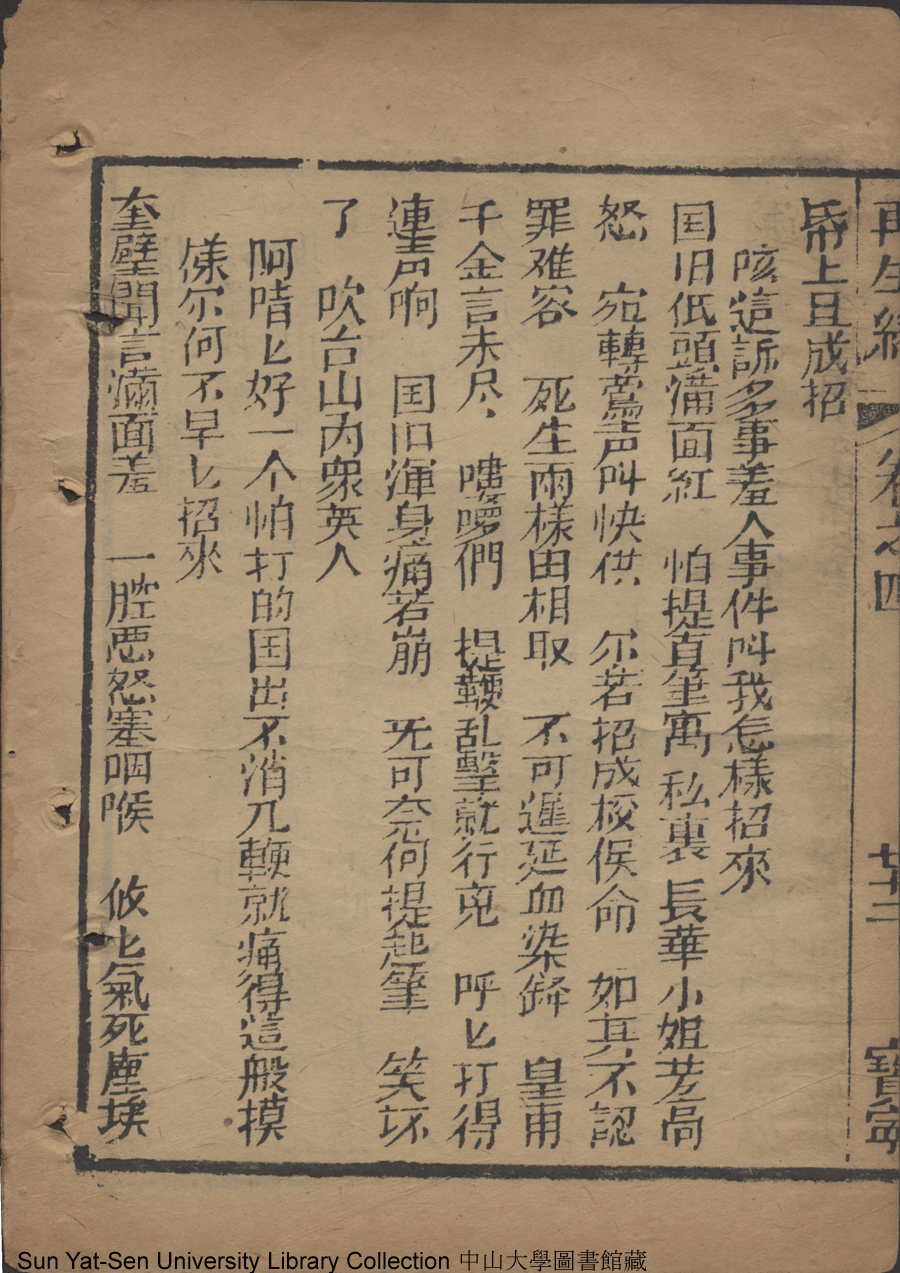 再生緣 卷之四 廿三 寶寧
帋上且成招
咳這訴多事羞人事件叫我怎樣招來
国旧低頭滿面紅 怕提直筆寓私裏 長華小姐芳高
怒 宛轉鶯声叫快供 尔若招成校俟命 如其不認
罪难容 死生兩樣由相取 不可遲延血染鋒 皇甫
千金言未尽 嘍囉們 提鞭乱擊就行兇 呼匕打得
連声响 国旧渾身痛若崩 旡可奈何提起筆 笑坏
了 吹台山內衆英人
阿唶匕好一个怕打的国出不消几鞭就痛得這般摸
様尔何不早匕招來
奎璧聞言滿面羞 一腔惡怒塞咽喉 攸匕氣死塵埃
Sun Yat-Sen University Library Collection 中山大學圖書館藏